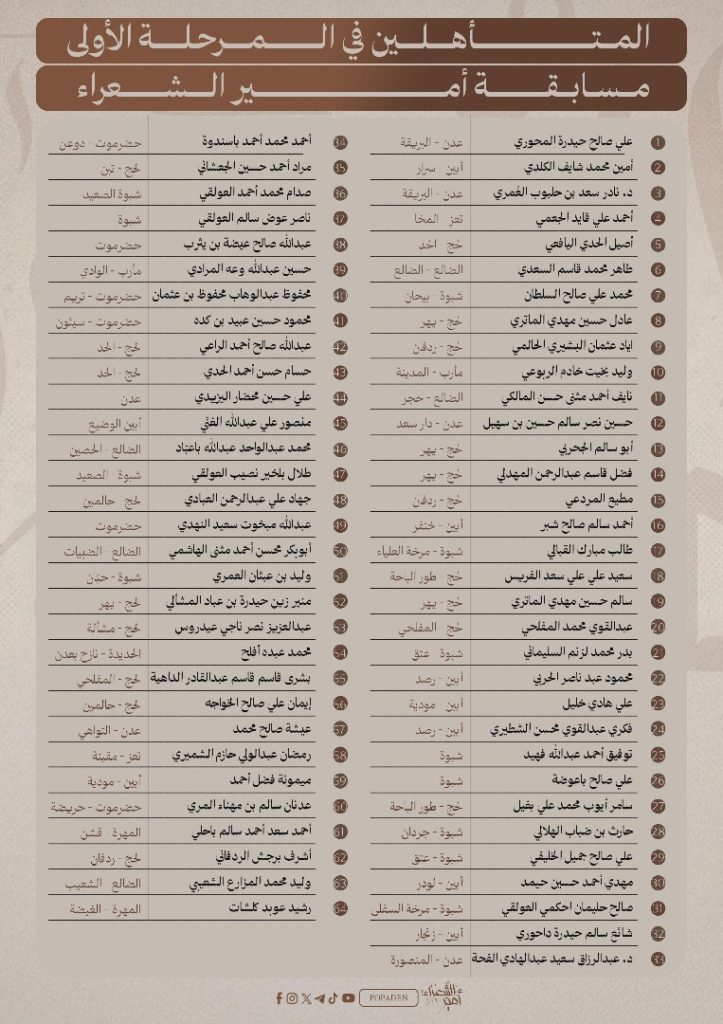 المتأهلين في المرحلة الأولى
مسابقة أمير الشعراء
1 علي صالح حيدرة المحوري عدن - البريقة
2 أمين محمد شايف الكلدي أبين - سرار
3 د. نادر سعد بن حلبوب العُمري عدن - البريقة
4 أحمد علي قايد الجعمي تعز - المخا
5 أصيل الحدي اليافعي لحج - الحد
6 طاهر محمد قاسم السعدي الضالع - الضالع
7 محمد علي صالح السلطان شبوة - بيحان
8 عادل حسين مهدي الماتري لحج - يهر
9 اياد عثمان البشيري الحالمي لحج - ردفان
10 وليد بخيت خادم الربوعي مأرب - المدينة
11 نايف أحمد مثنى حسن المالكي الضالع - حجر
12 حسين نصر سالم حسين بن سهيل عدن - دار سعد
13 أبو سالم الجحربي لحج - يهر
14 فضل قاسم عبدالرحمن المهدلي لحج - يهر
15 مطيع المردعي لحج - ردفان
16 أحمد سالم صالح شبر أبين - خنفر
17 طالب مبارك القبالي شبوة - مرخة العلياء
18 سعيد علي علي سعد الفريس لحج - طور الباحة
19 سالم حسين مهدي الماتري لحج - يهر
20 عبدالقوي محمد المفلحي لحج - المفلحي
21 بدر محمد لزنم السليماني شبوة - عتق
22 محمود عبد ناصر الحربي أبين - رصد
23 علي هادي خليل أبين - مودية
24 فكري عبدالقوي محسن الشطيري أبين - رصد
25 توفيق أحمد عبدالله فهيد شبوة
26 علي صالح باعوضة شبوة
27 سامر أيوب محمد علي بغيل لحج - طور الباحة
28 حارث بن ضباب الهلالي شبوة - جردان
29 علي صالح جميل الخليفي شبوة - عتق
30 مهدي أحمد حسين حيمد أبين - لودر
31 صالح حليمان احكمي العولقي شبوة - مرخة السفلى
32 شائع سالم حيدرة داحوري أبين - زنجبار
33 د. عبدالرزاق سعيد عبدالهادي الفحة عدن - المنصورة
34 أحمد محمد أحمد باسندوة حضرموت - دوعن
35 مراد أحمد حسين الجعشاني لحج - تبن
36 صدام محمد أحمد العولقي شبوة الصعيد
37 ناصر عوض سالم العولقي شبوة
38 عبدالله صالح عيضة بن يثرب حضرموت
39 حسين عبدالله وعه المرادي مأرب - الوادي
40 محفوظ عبدالوهاب محفوظ بن عثمان حضرموت - تريم
41 محمود حسين عبيد بن كده حضرموت - سيئون
42 عبدالله صالح أحمد الراعي لحج - الحد
43 حسام حسن أحمد الحدي لحج - الحد
44 علي حسين محضار اليزيدي عدن
45 منصور علي عبدالله الغيّ أبين الوضيع
46 محمد عبدالواحد عبدالله باعبّاد الضالع - الحصين
47 طلال بلخير نصيب العولقي شبوة - الصعيد
48 جهاد علي عبدالرحمن العبادي لحج - حالمين
49 عبدالله مبخوت سعيد النهدي حضرموت
50 أبوبكر محسن أحمد مثنى الهاشمي الضالع - الضبيات
51 وليد بن عيثان العمري شبوة - حبّان
52 منير زين حيدرة بن عباد المشألي لحج - يهر
53 عبدالعزيز نصر ناجي عيدروس لحج - مشألة
54 محمد عبده أفلح الحديدة - نازح بعدن
55 بشرى قاسم قاسم عبدالقادر الداهية لحج - المفلحي
56 إيمان علي صالح الخواجه لحج - حالمين
57 عيشة صالح محمد عدن - التواهي
58 رمضان عبدالولي حازم الشميري تعز - مقبنة
59 ميمونة فضل أحمد أبين - مودية
60 عدنان سالم بن مهناء المري حضرموت - حريضة
61 أحمد سعد أحمد سالم باحلي المهرة - قشن
62 أشرف برجش الردفاني لحج - ردفان
63 وليد محمد المزارع الشعيبي الضالع - الشعيب
64 رشيد عوبد كلشات المهرة - الغيضة
POPADEN
أمير الشعراء